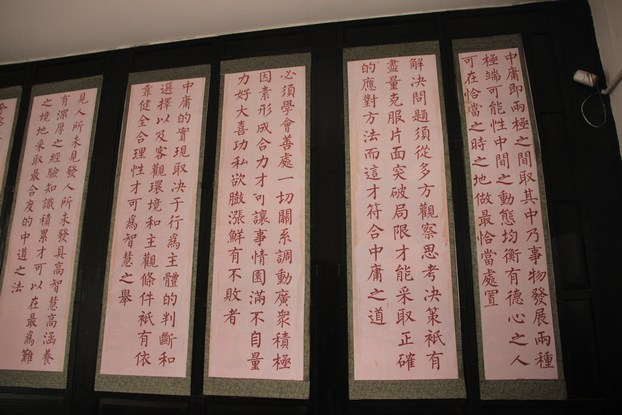 中庸即兩極之間取其中乃事物發展兩種
極端可能性中間之動態均衡有德心之人
可在恰當之時之地做最恰當處置
解決問題須從多方觀察思考決策祇有
盡量克服片面突破局限才能采取正確
的應對方法而這才符合中庸之道
必須學會善處一切關系調動廣衆積極
因素形成合力才可讓事情圓滿不自量
力好大喜功私欲臌漲鮮有不敗者
中庸的實現取決于行爲主體的判斷和
選擇以及客觀環境和主觀條件祇有依
靠健全合理性才可爲智慧之舉
見人所未見發人所未發具高智慧高涵養
有渾厚之經驗知識積累才可以在最爲難
之境地采取最合度的中道之法